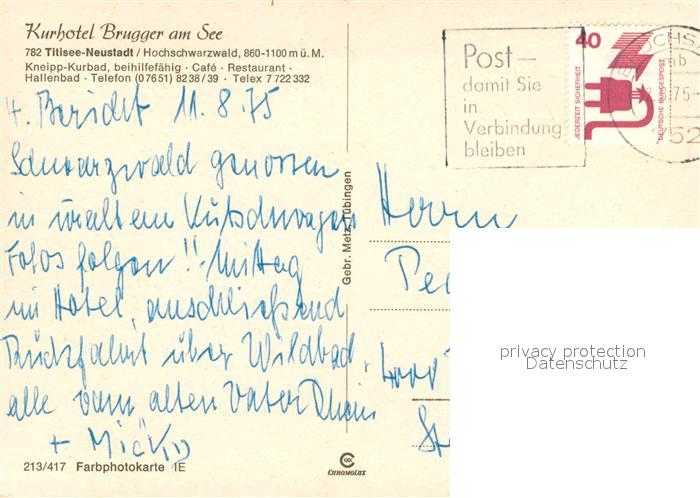 Kurhotel Brugger am See
782 Titisee-Neustadt / Hochschwarzwald, 860-1100 m ü. M.
Kneipp-Kurbad, beihilfefähig · Café · Restaurant ·
Hallenbad · Telefon (07651) 8238/39 · Telex 7 722 332
4. Bericht 11.8.75
Schwarzwald genossen
in uraltem Kutschwagen
Fotos folgen!! Mittag
im Hotel, anschließend
Rückfahrt über Wildbad,
alle vom alten Vater Rhein
+
213/417 Farbphotokarte IE
Gebr. Metz, Tübingen
CHROMOLUX
Post –
damit Sie
in
Verbindung
bleiben
40
JEDERZEIT SICHERHEIT
DEUTSCHE BUNDESPOST
Herrn
privacy protection
Datenschutz